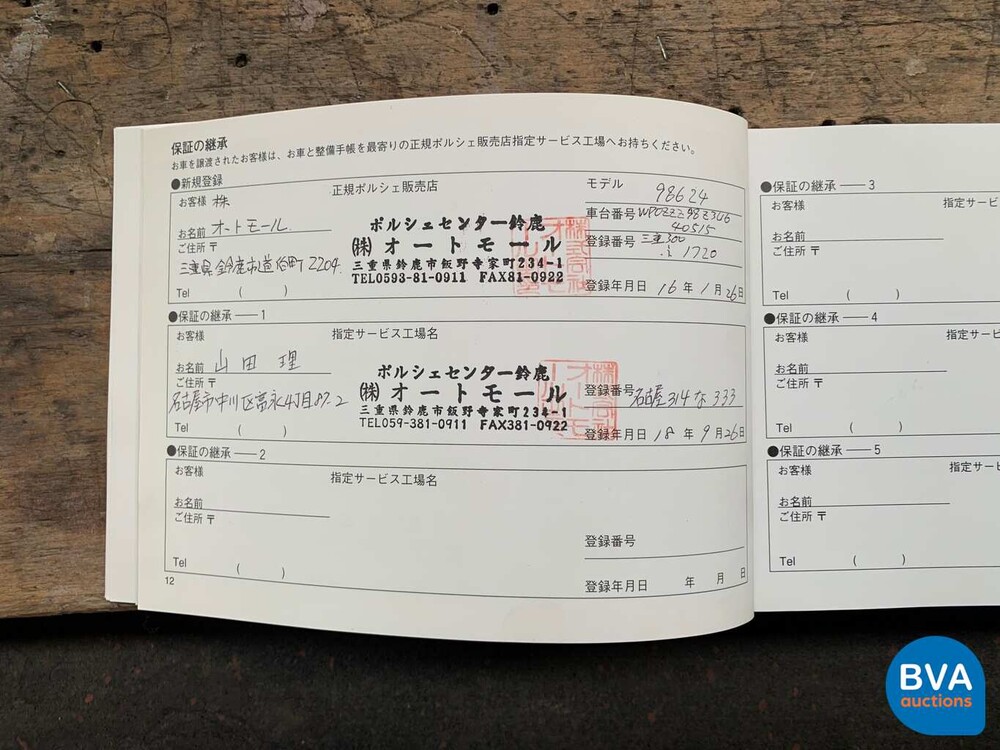 保証の継承
お車を譲渡されたお客様は、お車と整備手帳を最寄りの正規ポルシェ販売店指定サービス工場へお持ちください。
●新規登録
お客様 株
正規ポルシェ販売店
モデル 98624
お名前 オートモール
ポルシェセンター鈴鹿
車台番号 WP0ZZZ98Z3U6
40515
ご住所 〒
(株) オートモール
登録番号 三重300
1720
三重県鈴鹿市道伯町2204
三重県鈴鹿市飯野寺家町234-1
TEL0593-81-0911 FAX81-0922
Tel ( )
登録年月日 16年1月26日
●保証の継承 ── 1
お客様
指定サービス工場名
お名前 山田 理
ポルシェセンター鈴鹿
ご住所 〒
(株) オートモール
登録番号 名古屋314 な 333
名古屋市中川区富永4丁目87-2
三重県鈴鹿市飯野寺家町234-1
TEL059-381-0911 FAX381-0922
Tel ( )
登録年月日 18年9月26日
●保証の継承 ── 2
お客様
指定サービス工場名
お名前
ご住所 〒
登録番号
Tel ( )
登録年月日 年 月 日
12
●保証の継承 ── 3
お客様
指定サー
お名前
ご住所 〒
Tel ( )
●保証の継承 ── 4
お客様
指定サー
お名前
ご住所 〒
Tel ( )
●保証の継承 ── 5
お客様
指定サー
お名前
ご住所 〒
Tel ( )
BVA
auctions